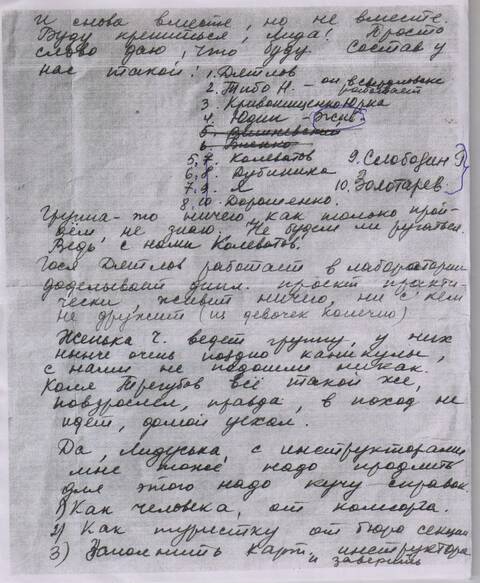 И снова вместе, но не вместе.
Буду крепиться, Лида! Просто
слово даю, что буду. Состав у
нас такой: 1. Дятлов
2. Тибо Н. – он в Свердловске работает
3. Кривонищенко Юрка
4. Юдин – Экив.
5. Вишневский
6. Биенко
5,7. Колеватов 9. Слободин Р.
6,8. Дубинина 10. Золотарев.
7,9. Я
8,10. Дорошенко.
Группа – то ничего, как только прой-
дём, не знаю. Не будем ли ругаться.
Ведь с нами Колеватов.
Гося Дятлов работает в лаборатории
доделывает дипл. проект практи-
чески, живет ничего, ни с кем
не дружит (из девочек конечно)
Женька Ч. ведет группу, у них
ныне очень поздно каникулы,
с нами не подошли никак.
Коля Трегубов всё такой же,
повзрослел, правда, в поход не
идет, домой уехал.
Да, Лидуська, с инструкторами
мне тоже надо продлить
для этого надо кучу справок.
1) Как человека, от комсорга.
2) Как туристку от бюро секции
3) Заполнить карт. инструктора
и заверить